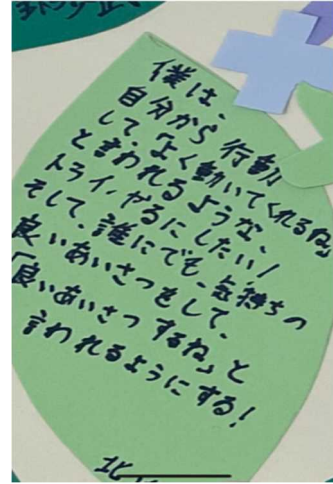 僕は、
自分から行動
して、「よく動いてくれるね」
と言われるような、
トライやるにしたい!
そして、誰にでも、気持ちの
良いあいさつをして、
「良いあいさつするね」と
言われるようにする!
北